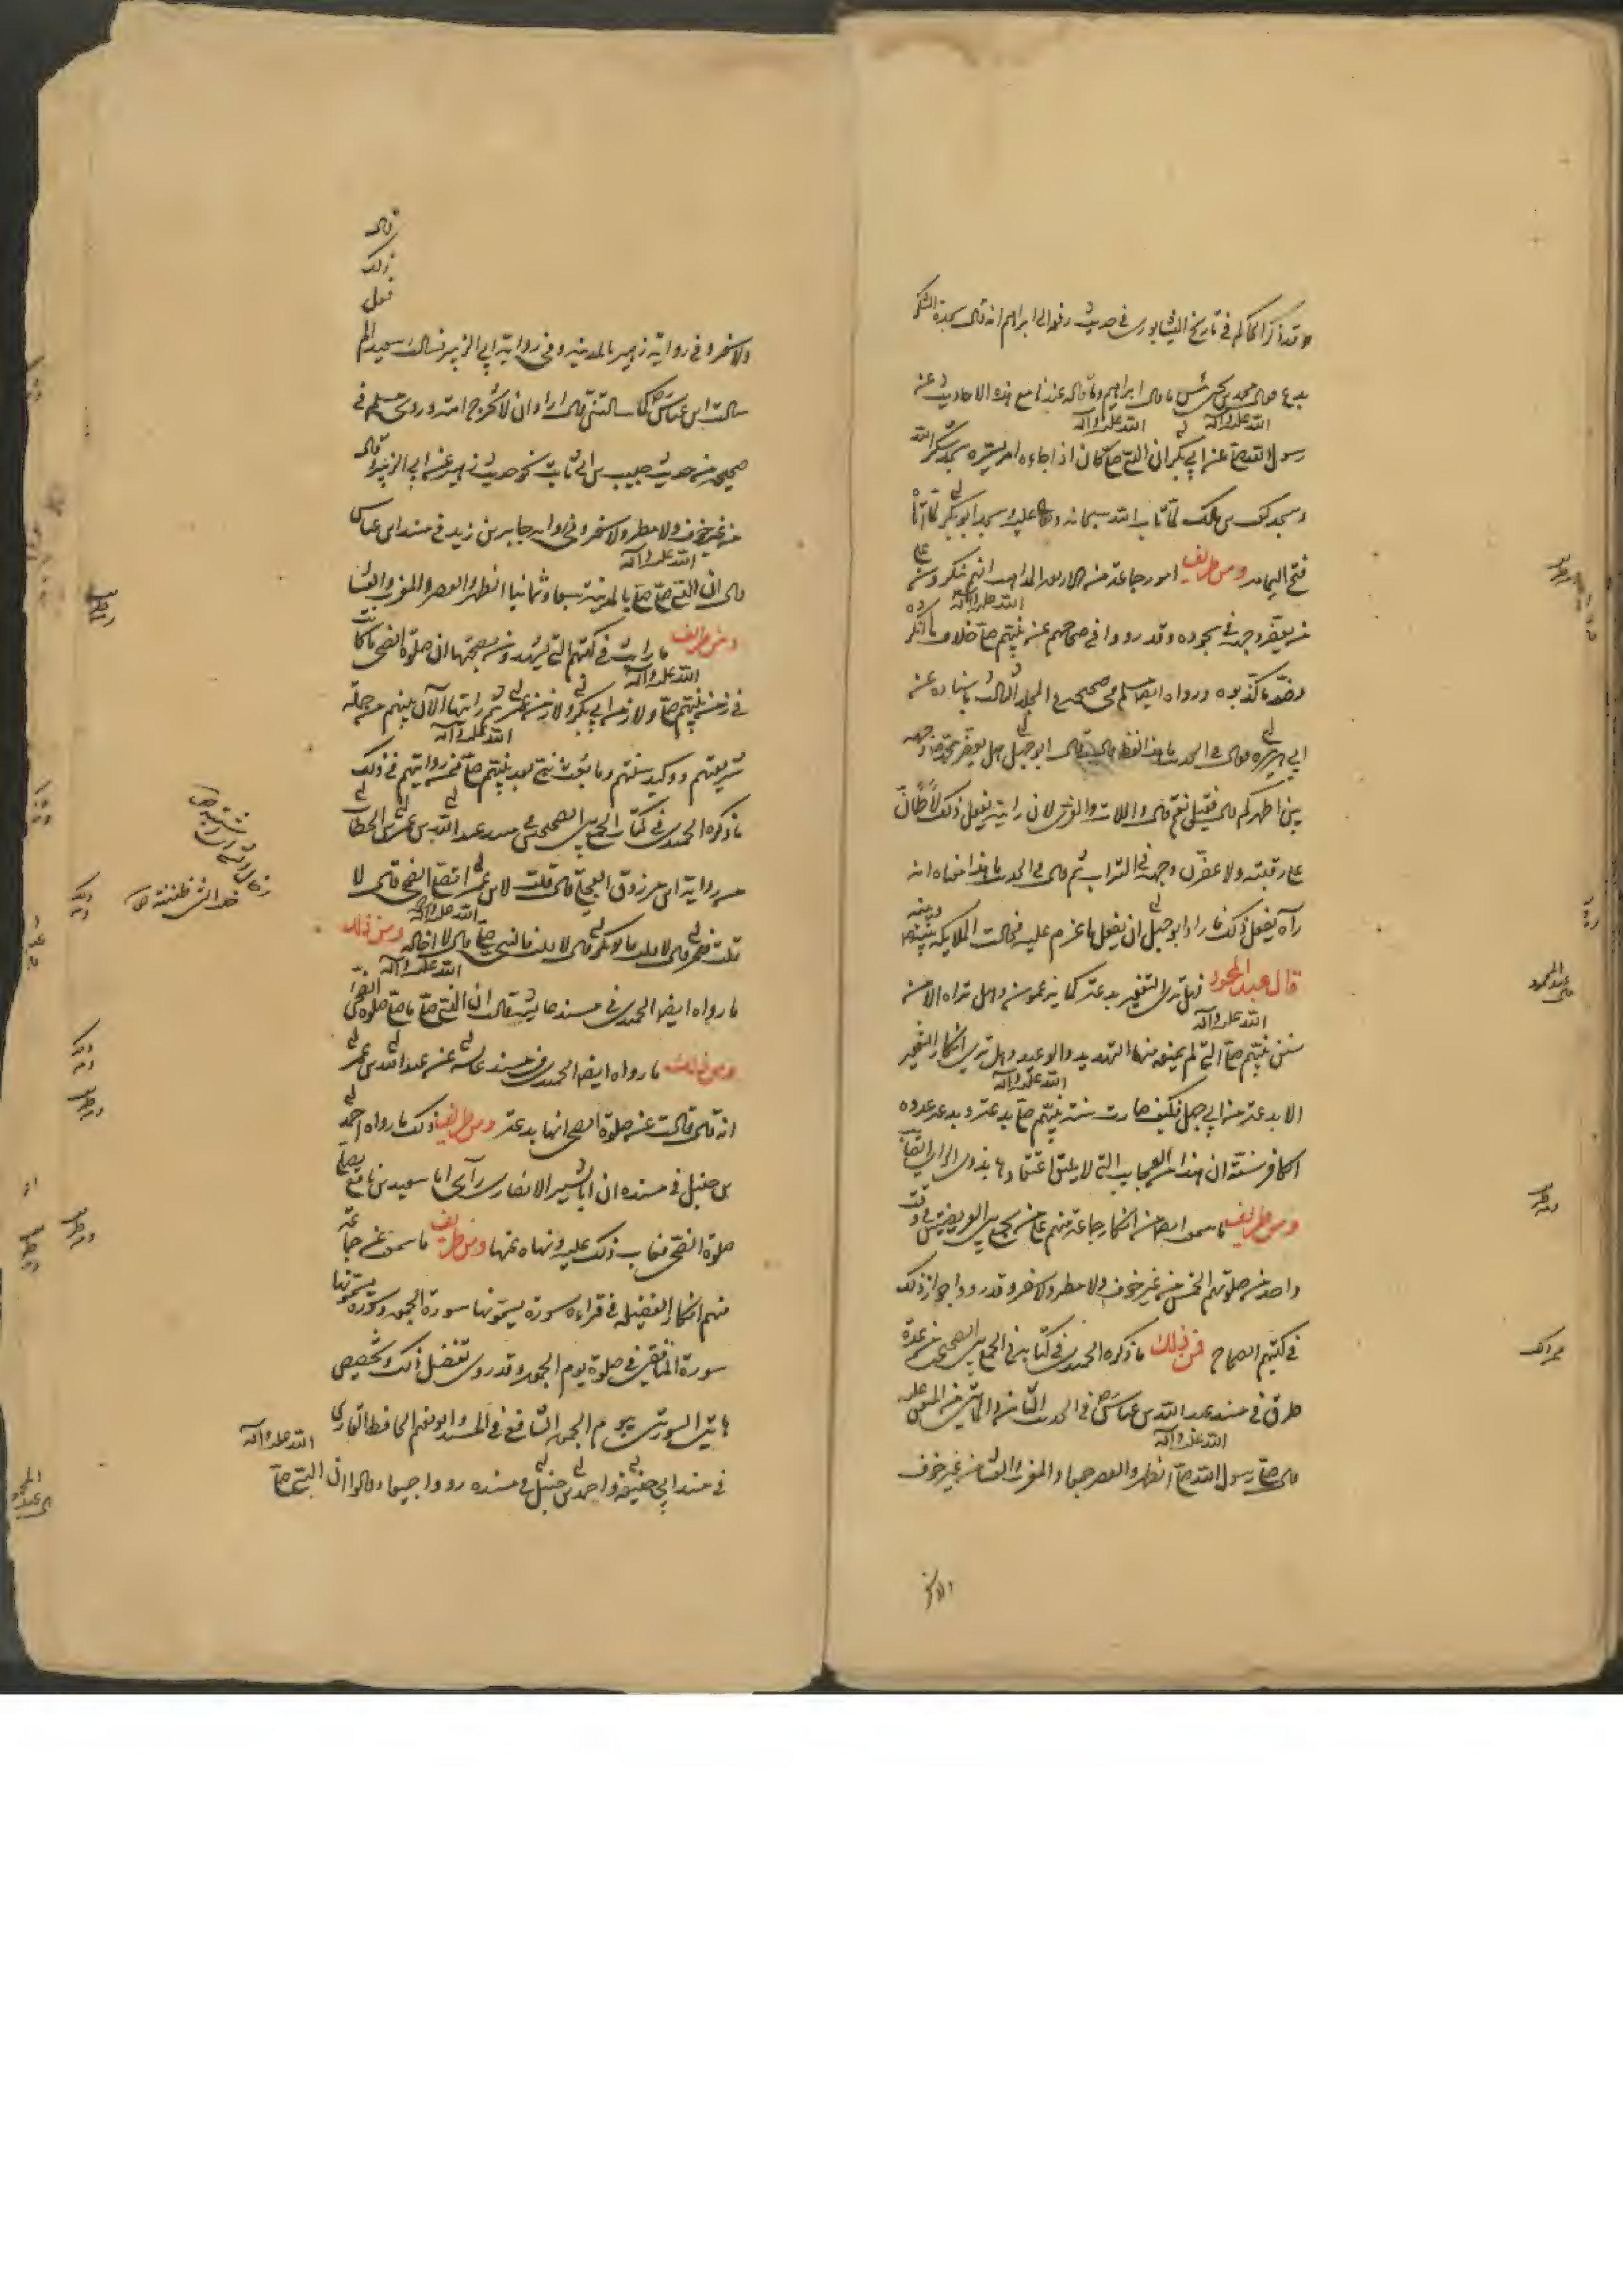 وقد ذكر الحاكم في تاريخ النيشابوري في حديث رفعه الى ابراهيم انه قال سجدة الشكر
بدعة قال محمد بن يحيى بئس ما قال ابراهيم وما قاله عندنا مع هذه الاحاديث عن
رسول الله صلى الله عليه وآله عن ابي بكر ان النبي صلى الله عليه وآله كان اذا جاءه امر يسره سجد شكرا لله
وسجد كعب بن مالك لما تاب الله سبحانه عليه وسجد ابو بكر لما اتاه
فتح اليمامة ومن طريف امور جماعة من الاربعة المذاهب انهم ينكرون على
من يعفر وجهه في سجوده وقد رووا في صحاحهم عن نبيهم صلى الله عليه وآله خلاف ما انكروه
وضد ما كذبوه ورواه ايضا مسلم في صحيحه في المجلد الثالث باسناده عن
ابي هريرة قال في الحديث ما هذا لفظه قال قال ابو جهل هل يعفر محمد وجهه
بين اظهركم قال فقيل نعم قال واللات والعزى لان رايته يفعل ذلك لأطأن
على رقبته ولاعفرن وجهه في التراب ثم قال في الحديث ما هذا معناه انه
رآه يفعل ذلك فاراد ابو جهل ان يفعل ما عزم عليه فحالت الملايكة بينه وبينه
قال عبد المحمود فهل ترى التعفير بدعة كما يزعمون وهل تراه الا من
سنن نبيهم صلى الله عليه وآله التي لم يمنعه منها التهديد والوعيد وهل ترى انكار التعفير
الا بدعة من ابي جهل فكيف صارت سنة نبيهم صلى الله عليه وآله بدعة وبدعة عدوه
الكافر سنة ان هذا من العجايب التي لا يليق اعتقادها بذوي الراي الصائب
ومن طريف ما سمعت ايضا من انكار جماعة منهم على من يجمع بين الفريضتين في وقت
واحد من صلوتهم الخمس من غير خوف ولا مطر ولا سفر وقد رووا جواز ذلك
في كتبهم الصحاح فمن ذلك ما ذكره الحميدي في كتابه في الجمع بين الصحيحين من عدة
طرق في مسند عبد الله بن عباس في الحديث الثامن والثمانين من المتفق عليه
قال صلى رسول الله صلى الله عليه وآله الظهر والعصر جميعا والمغرب والعشاء من غير خوف
ولا سفر وفي رواية زهير بالمدينة وفي رواية ابي الزبير فسالت سعيدا لم
فعل
ذلك
فقال
سالت ابن عباس كما سالتني قال اراد ان لا يحرج امته وروى مسلم في
صحيحه من حديث حبيب بن ابي ثابت نحو حديث زهير عن ابي الزبير وقال
من غير خوف ولا مطر ولا سفر وفي رواية جابر بن زيد في مسند ابن عباس
قال ان النبي صلى الله عليه وآله صلى بالمدينة سبعا وثمانيا الظهر والعصر والمغرب والعشاء
ومن طرايف ما رايت في كتبهم التي يشهدون بصحتها ان صلوة الضحى ما كانت
في زمن نبيهم صلى الله عليه وآله ولا زمن ابي بكر ولا زمن عمر ثم رايتها الآن بينهم من جملة
شريعتهم ووكيد سنتهم وما بعث نبي بعد نبيهم صلى الله عليه وآله فمن روايتهم في ذلك
ما ذكره الحميدي في كتاب الجمع بين الصحيحين في مسند عبد الله بن عمر بن الخطاب
من رواية ابن مرزوق العجلي قال قلت لابن عمر اتصلي الضحى قال لا
قلت فعمر قال لا قلت فابو بكر قال لا قلت فالنبي صلى الله عليه وآله قال لا اخاله ومن ذلك
ما رواه ايضا الحميدي في مسند عايشة قالت ان النبي صلى الله عليه وآله ما صلى صلوة الضحى
ومن ذلك ما رواه ايضا الحميدي في مسند عايشة عن عبد الله بن عمر
انه قال قالت عن صلوة الضحى انها بدعة ومن طرايف ذلك ما رواه احمد
بن حنبل في مسنده ان ابا بشير الانصاري رآى ابا سعيد بن نافع يصلي
صلوة الضحى فعاب ذلك عليه ونهاه عنها ومن طريف ما سمعت عن جماعة
منهم انكار الفضيلة في قراءة سورة يسمونها سورة الجمعة وسورة يسمونها
سورة المنافقين في صلوة يوم الجمعة وقد روى تفضيل ذلك وتخصيص
هاتين السورتين بيوم الجمعة الشافعي في المسند وابو نعيم الحافظ البخاري
في مسند ابي حنيفة واحمد بن حنبل في مسنده رووا جميعا وقالوا ان النبي صلى الله عليه وآله